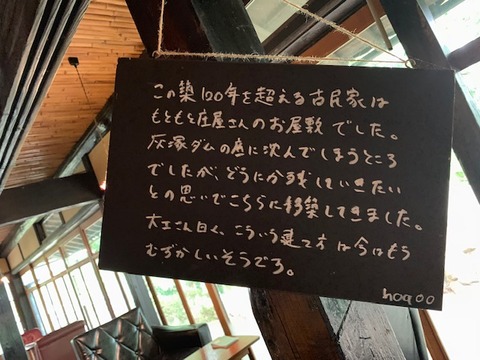 この築120年を超える古民家は
もともと庄屋さんのお屋敷でした。
灰塚ダムの底に沈んでしまうところ
でしたが、どうにか残していきたい
との思いでこちらに移築してきました。
大工さん曰く、こういう建て方は今はもう
むずかしいそうでる。
hoqoo